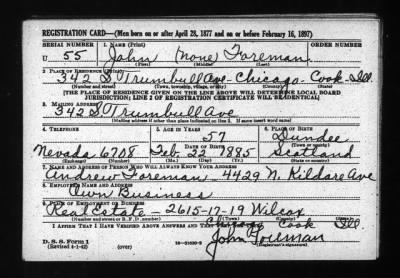 REGISTRATION CARD—(Men born on or after April 28, 1877 and on or before February 16, 1897)
SERIAL NUMBER 1. NAME (Print) ORDER NUMBER
U 55 John (none) Foreman
(First) (Middle) (Last)
2. PLACE OF RESIDENCE (Print)
342 S Trumbull Ave - Chicago - Cook - Ill
(Number and street) (Town, township, village, or city) (County) (State)
[THE PLACE OF RESIDENCE GIVEN ON THE LINE ABOVE WILL DETERMINE LOCAL BOARD
JURISDICTION; LINE 2 OF REGISTRATION CERTIFICATE WILL BE IDENTICAL]
3. MAILING ADDRESS
342 S Trumbull Ave
[Mailing address if other than place indicated on line 2. If same insert word same]
4. TELEPHONE 5. AGE IN YEARS 6. PLACE OF BIRTH
57 Dundee
DATE OF BIRTH (Town or county)
Nevada 6708 Feb 22 1885 Scotland
(Exchange) (Number) (Mo.) (Day) (Yr.) (State or country)
7. NAME AND ADDRESS OF PERSON WHO WILL ALWAYS KNOW YOUR ADDRESS
Andrew Foreman - 4429 N. Kildare Ave
8. EMPLOYER'S NAME AND ADDRESS
Own Business
Real Estate - 2615-17-19 Wilcox
(Number and street or R. F. D. number) (Town) (County) (State)
Chicago Cook Ill
I AFFIRM THAT I HAVE VERIFIED ABOVE ANSWERS AND THAT
John Foreman
D. S. S. Form 1
(Revised 4-1-42) (over) (Registrant's signature)